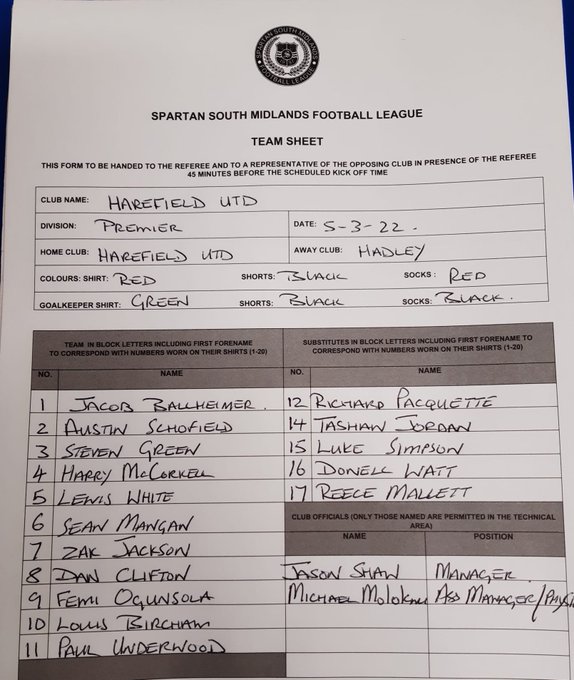 SPARTAN SOUTH MIDLANDS
FOOTBALL LEAGUE
SPARTAN SOUTH MIDLANDS FOOTBALL LEAGUE
TEAM SHEET
THIS FORM TO BE HANDED TO THE REFEREE AND TO A REPRESENTATIVE OF THE OPPOSING CLUB IN PRESENCE OF THE REFEREE
45 MINUTES BEFORE THE SCHEDULED KICK OFF TIME
CLUB NAME: HAREFIELD UTD
DIVISION: PREMIER DATE: 5-3-22.
HOME CLUB: HAREFIELD UTD AWAY CLUB: HADLEY
COLOURS: SHIRT: RED SHORTS: BLACK SOCKS: RED
GOALKEEPER SHIRT: GREEN SHORTS: BLACK SOCKS: BLACK.
TEAM IN BLOCK LETTERS INCLUDING FIRST FORENAME
TO CORRESPOND WITH NUMBERS WORN ON THEIR SHIRTS (1-20)
SUBSTITUTES IN BLOCK LETTERS INCLUDING FIRST FORENAME TO
CORRESPOND WITH NUMBERS WORN ON THEIR SHIRTS (1-20)
NO. NAME NO. NAME
1 JACOB BALLHEIMER. 12 RICHARD PACQUETTE
2 AUSTIN SCHOFIELD 14 TASHAN JORDAN
3 STEVEN GREEN 15 LUKE SIMPSON
4 HARRY McCORKELL 16 DONELL WATT
5 LEWIS WHITE 17 REECE MALLETT
6 SEAN MANGAN
7 ZAK JACKSON
8 DAN CLIFTON
9 FEMI OGUNSOLA
10 LOUIS BIRCHAM
11 PAUL UNDERWOOD
CLUB OFFICIALS (ONLY THOSE NAMED ARE PERMITTED IN THE TECHNICAL
AREA)
NAME POSITION
JASON SHAW MANAGER.
MICHAEL ASS MANAGER/